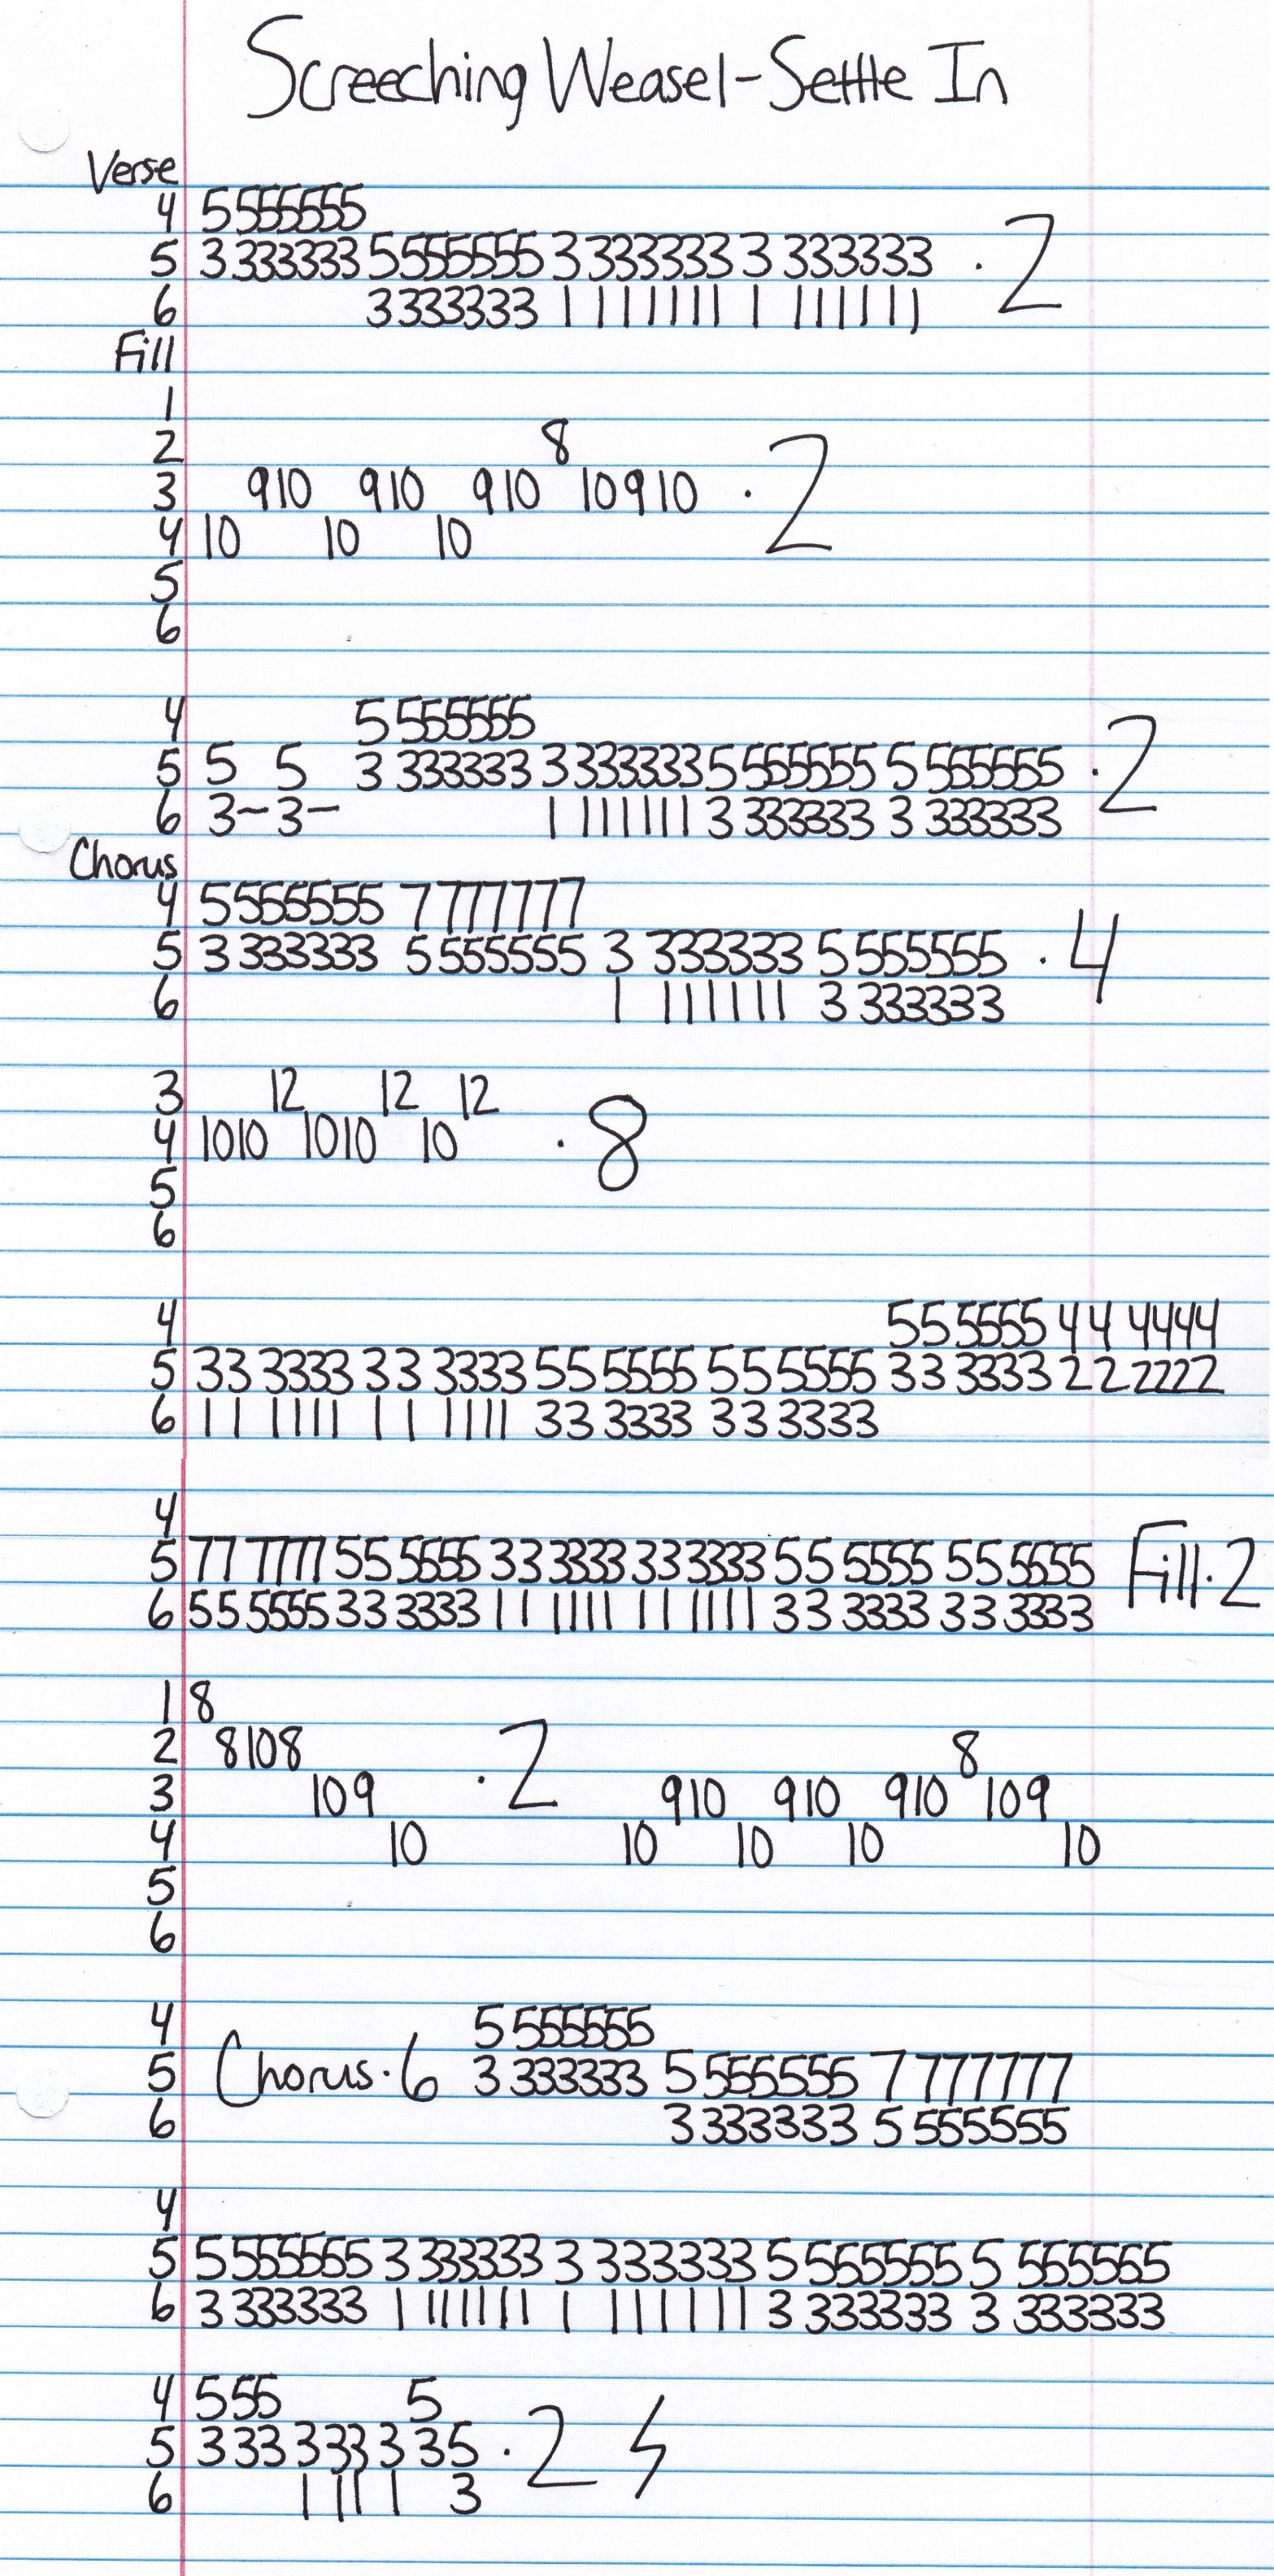 Screeching Weasel-Settle In
Verse
4 5 555555
5 3 333333 5555555 3 333333 3 333333 · 2
6 3333333 1 111111 1 111111
Fill
1
2 8
3 910 910 910 10910 · 2
4 10 10 10
5
6
4 5 555555
5 5 5 3 333333 3 333333 5 555555 5 555555 · 2
6 3-3- 1 111111 3 333333 3 333333
Chorus
4 5 555555 7 777777
5 3 333333 5 555555 3 333333 5 555555 · 4
6 1 111111 3 333333
3 12 12 12
4 1010 1010 10 · 8
5
6
4 55 5555 44 4444
5 33 3333 33 3333 55 5555 55 5555 33 3333 22 2222
6 11 1111 11 1111 33 3333 33 3333
4
5 77 7777 55 5555 33 3333 33 3333 55 5555 55 5555 Fill·2
6 55 5555 33 3333 11 1111 11 1111 33 3333 33 3333
1 8
2 8108 8
3 109 · 2 910 910 910 109
4 10 10 10 10 10
5
6
4 5 555555
5 Chorus·6 3 333333 5 555555 7 777777
6 3 333333 5 555555
4
5 5 555555 3 333333 3 333333 5 555555 5 555555
6 3 333333 1 111111 1 111111 3 333333 3 333333
4 555 5
5 333 333 3 35 · 2
6 111 1 3